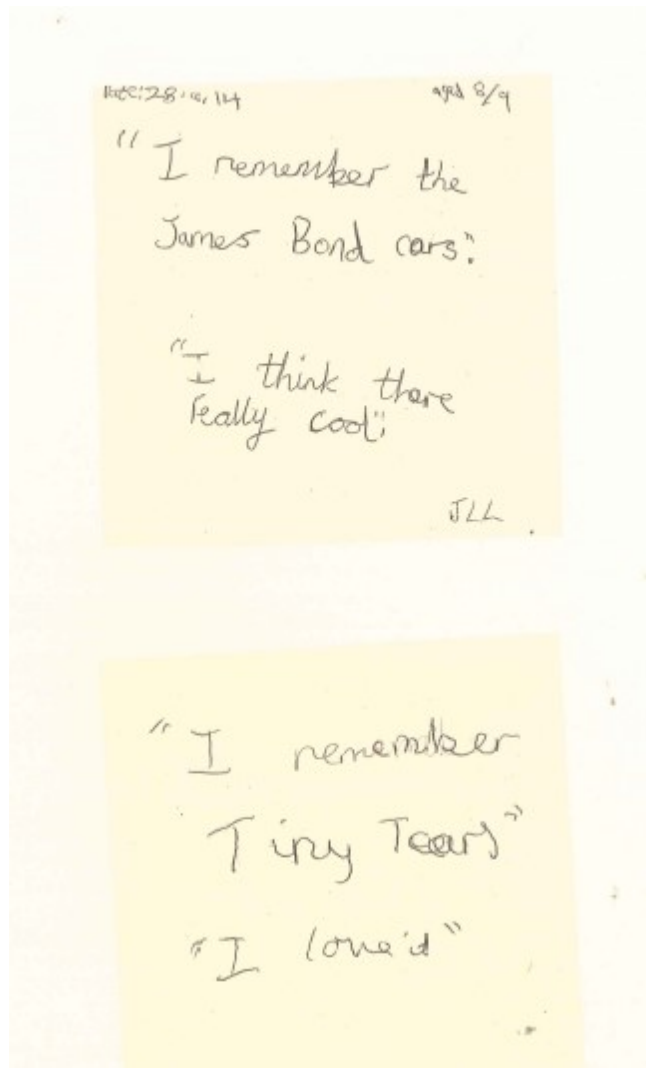 Date: 28.10.14 aged 8/9
"I remember the
James Bond cars".
"I think there
really cool".
JLL
"I remember
Tiny Tears"
"I love'd"